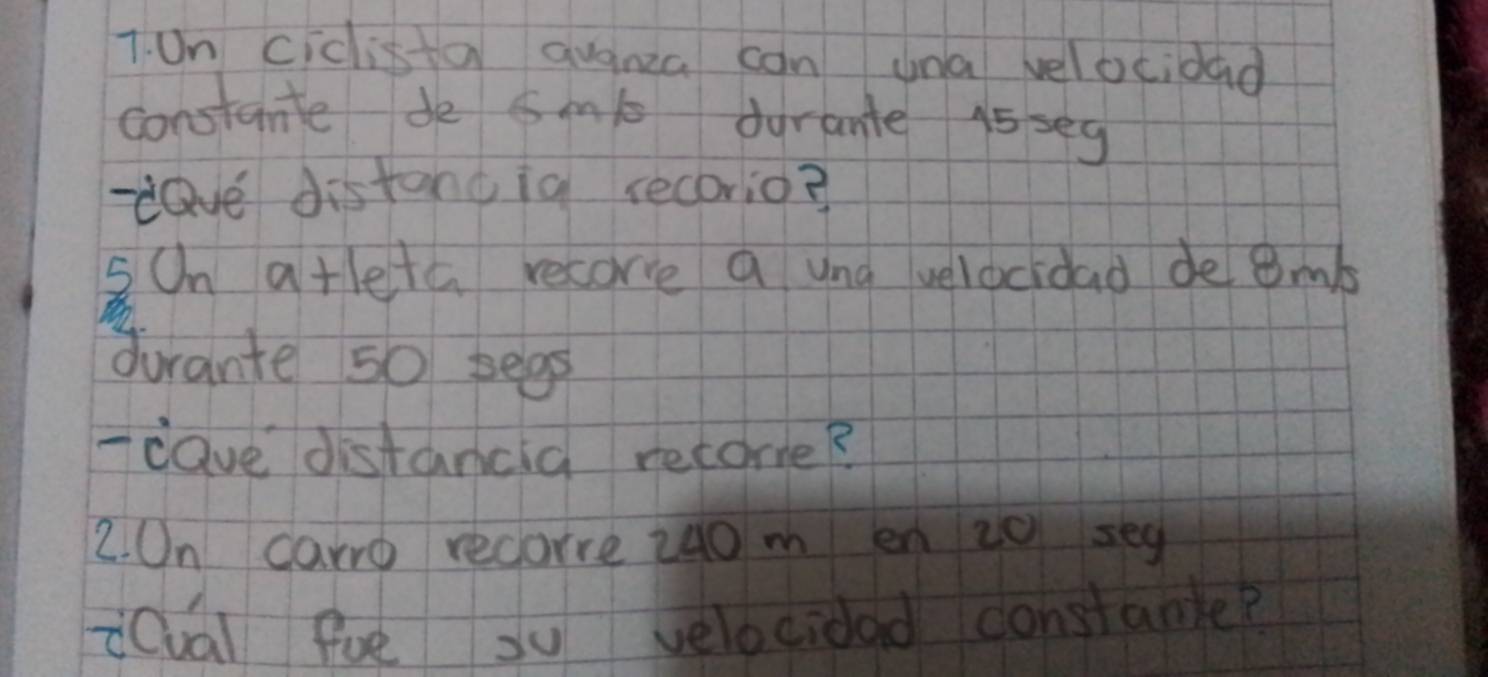 1. Un ciclista avanza con una velocidad
constante de 6 m/s durante 15 seg
-¿Qué distancia recorio?
5 Un atleta recorre a una velocidad de 8 m/s
durante 50 segs
-¿Qué distancia recorre?
2. Un carro recorre 240 m en 20 seg
-¿Cuál fue su velocidad constante?